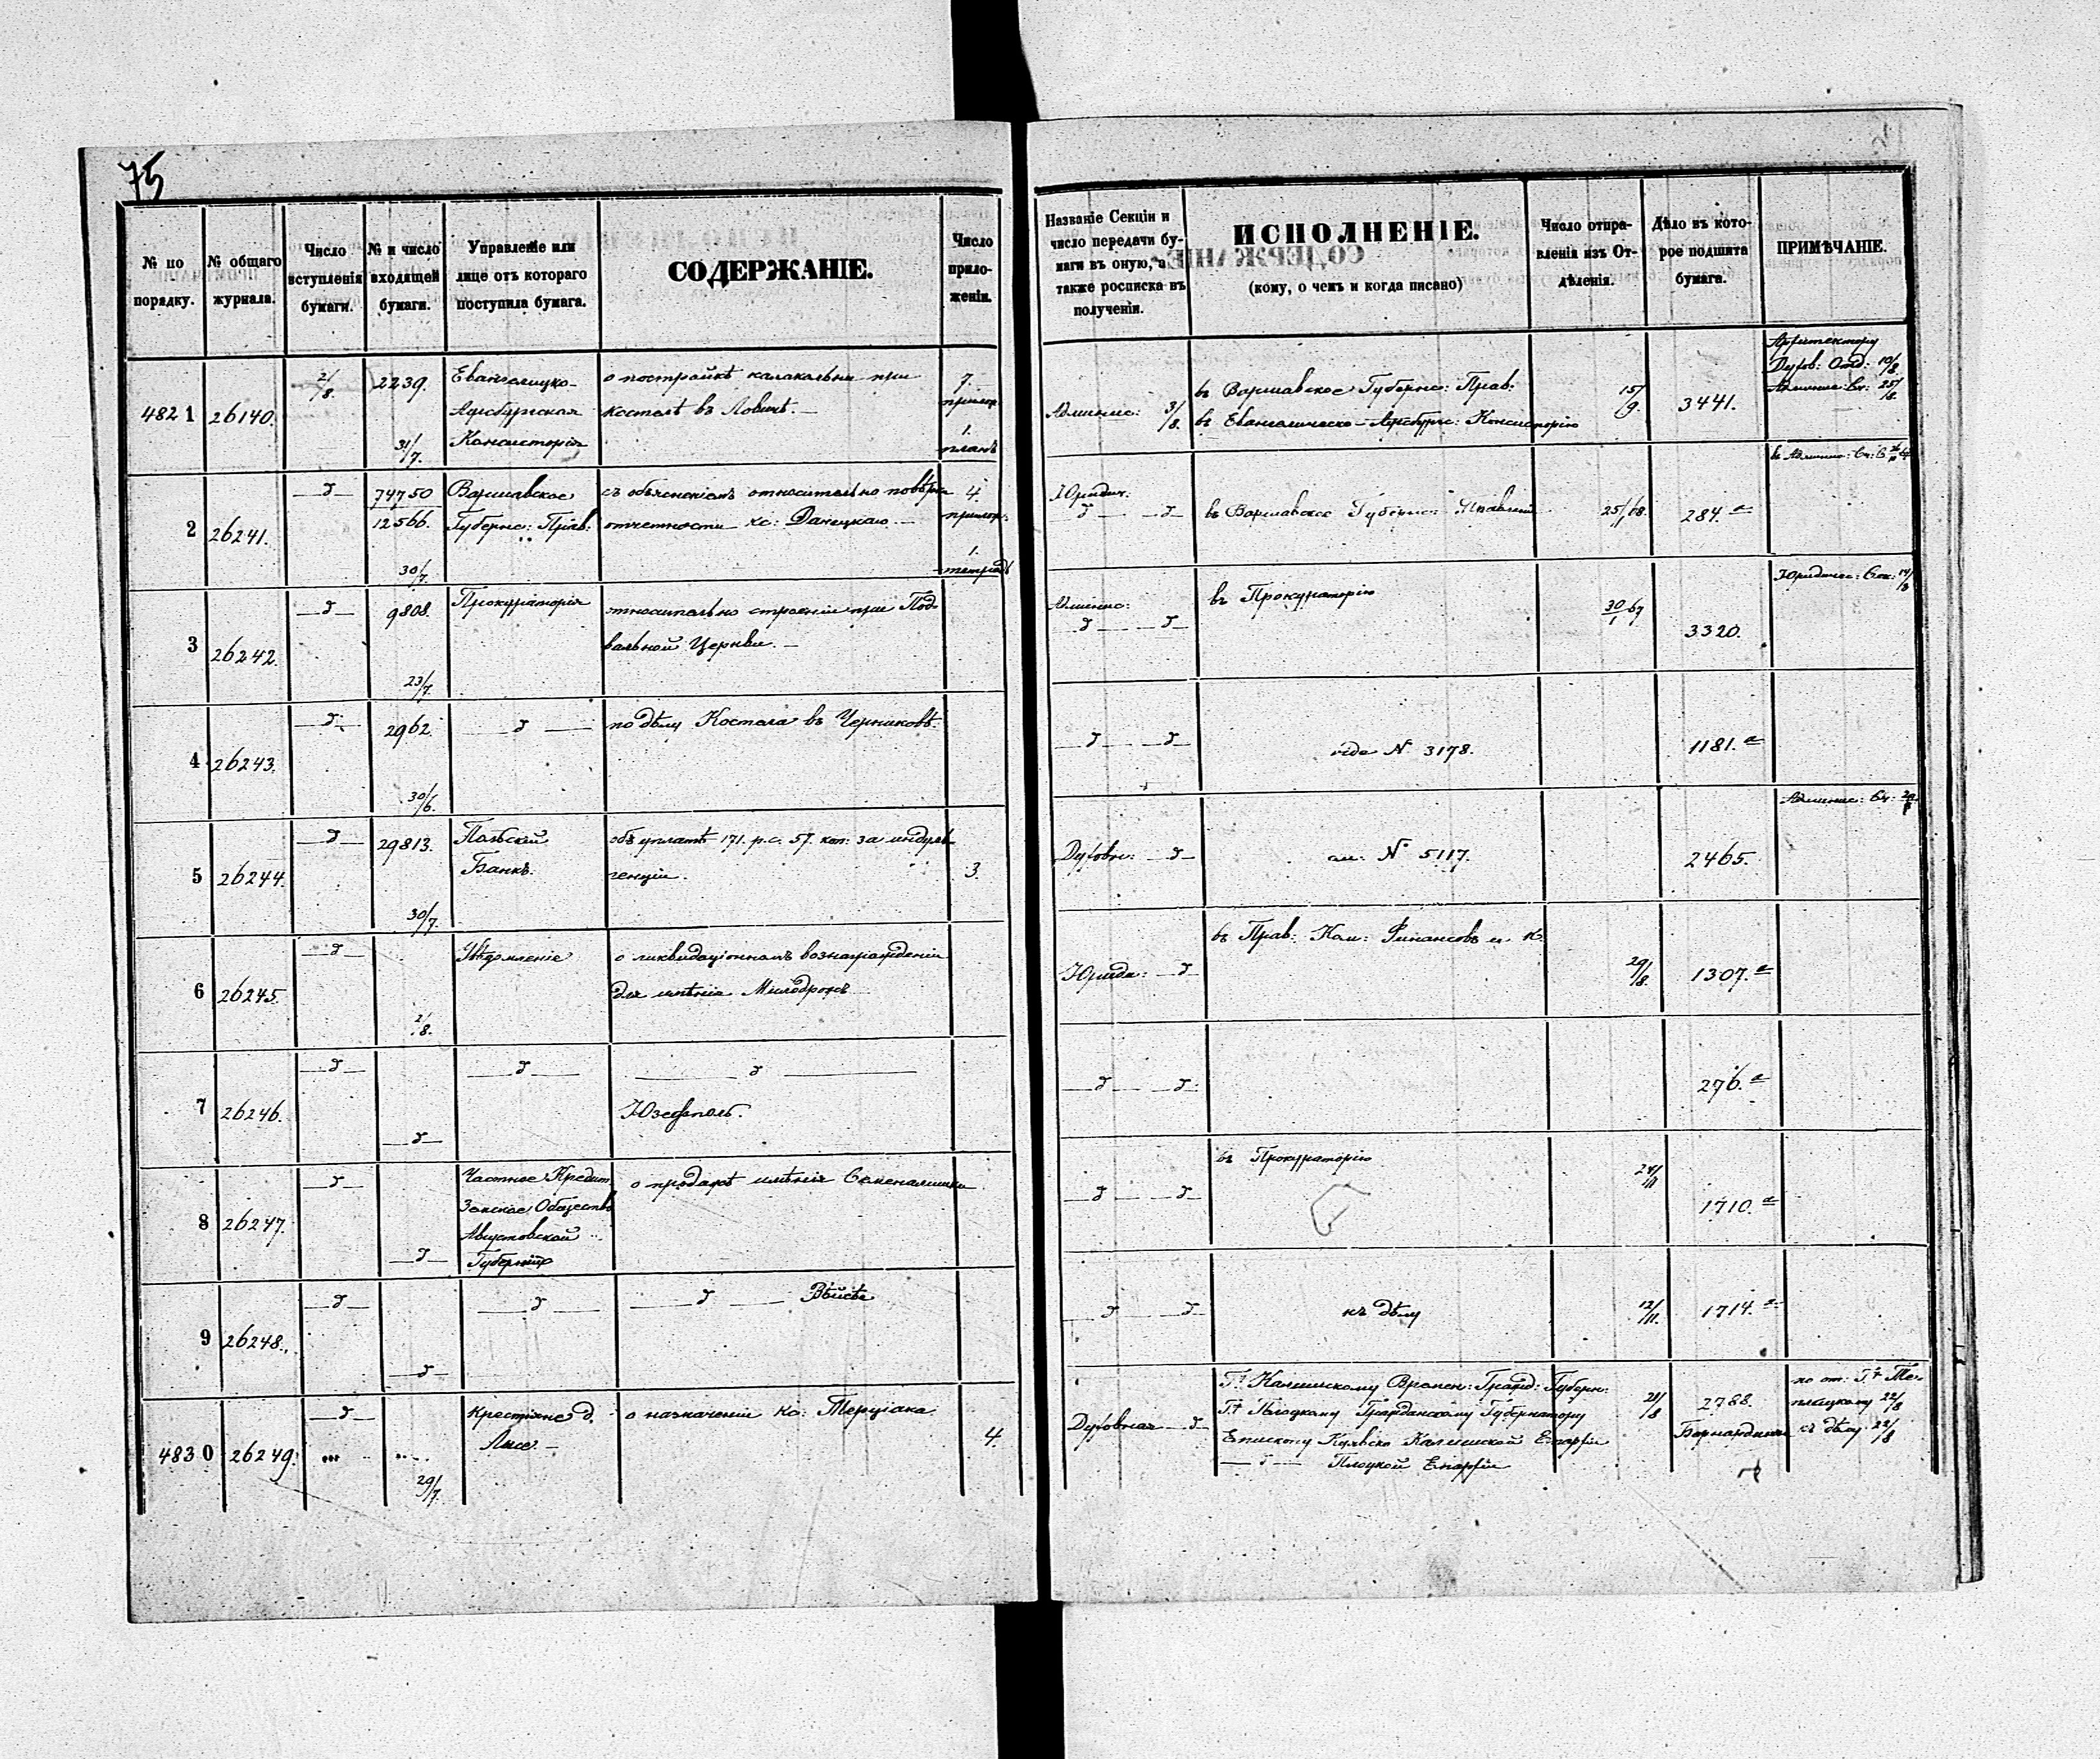 75
№ по порядку.
№ общаго журнала.
Число вступленія бумаги.
№ и число входящей бумаги.
Управленіе или лице отъ котораго поступила бумага.
СОДЕРЖАНІЕ.
Число приложеній.
Названіе Секціи и число передачи бумаги въ оную, а также росписка въ полученіи.
ИСПОЛНЕНІЕ.
(кому, о чемъ и когда писано)
Число отправленія изъ Отдѣленія.
Дѣло въ которое подшита бумага.
ПРИМѢЧАНІЕ.
4821 26140. 2/8. 2239. 31/7.
Евангелицко-
Аугсбургская
Консисторія
о постройкѣ калакальни при
костелѣ въ Ловичѣ. —
7. прилож. 1. планъ
Админис: 3/8.
въ Варшавское Губернс: Прав:
въ Евангелическо-Аугсбургс: Консисторію
15/9. 3441.
Архитектору
Духов: Отд: 10/8
Админис: Ск: 25/8.
2 26241. —д— 74750 12566. 30/7.
Варшавское
Губернс: Прав:
съ объясненіемъ относительно повѣрки
отчетности кс: Данецкаго —
4. прилож: 1. тетрадь
Юридич:
—д— —д—
въ Варшавское Губернс: Правленіе
25/1 68. 284.а
3 26242. —д— 9808. 23/7.
Прокураторія
относительно строеніи при Под-
вальной Церкви. —
Админис:
—д— —д—
въ Прокураторію
30/1 67 3320.
Юридичес: Сек: 14/8
4 26243. —д— 2962. 30/6.
—д—
по дѣлу Костела въ Черниковѣ.
—д— —д—
vide N 3178.
1181.а
5 26244. —д— 29813. 30/7.
Польскій
Банкъ.
объ уплатѣ 171. р.с. 57. коп: за индуль-
генціи.
3.
Духовн: —д—
ad: N 5117.
2465.
Админис: Ск:
6 26245. —д— 2/8.
Увѣдомленіе
о ликвидаціонномъ вознагражденіи
для имѣнія
Юриди: —д—
въ Прав: Ком: Финансовъ
29/8. 1307.а
7 26246. —д— —д—
—д—
—д—
Юзефполь.
—д— —д—
276.а
8 26247. —д— —д—
Частное Кредит.
Земское Общество
Августовской
Губерніи
о продажѣ имѣнія
—д— —д—
въ Прокураторію
1710.а
9 26248. —д— —д—
—д—
—д— Вѣйсѣе
—д— —д—
къ дѣлу
12/11. 1714.а
4830 26249. —д— 29/7.
Крестьяне д.
о назначеніи Кс: Терціака
4.
Духовная —д—
Г. Калишскому Времен: Гражд: Губерн:
Г. Плоцкому Гражданскому Губернатору
Епископу Куявско Калишской Епархіи
—д— Плоцкой Епархіи
21/8 2788.
Бернардины
съ дѣлу 22/8